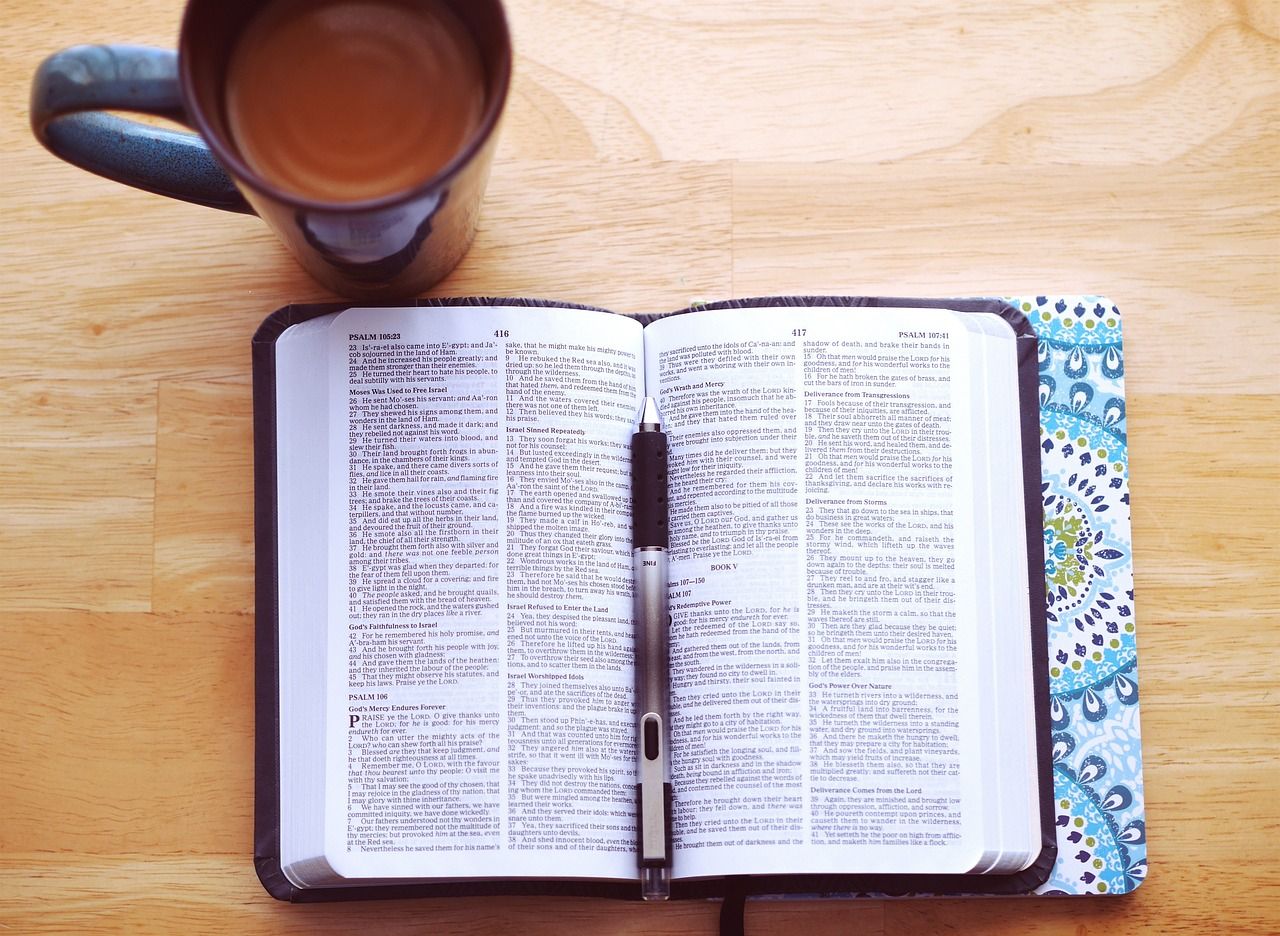 PSALM 105:23
416
23 Is'-ra-el also came into E'-gypt; and Ja'-
cob sojourned in the land of Ham.
24 And he increased his people greatly; and
made them stronger than their enemies.
25 He turned their heart to hate his people, to
deal subtilly with his servants.
Moses Was Used to Free Israel
26 He sent Mo'-ses his servant; and Aa'-ron
whom he had chosen.
27 They shewed his signs among them, and
wonders in the land of Ham.
28 He sent darkness, and made it dark; and
they rebelled not against his word.
29 He turned their waters into blood, and
slew their fish.
30 Their land brought forth frogs in abun-
dance, in the chambers of their kings.
31 He spake, and there came divers sorts of
flies, and lice in all their coasts.
32 He gave them hail for rain, and flaming fire
in their land.
33 He smote their vines also and their fig
trees; and brake the trees of their coasts.
34 He spake, and the locusts came, and ca-
terpillers, and that without number,
35 And did eat up all the herbs in their land,
and devoured the fruit of their ground.
36 He smote also all the firstborn in their
land, the chief of all their strength.
37 He brought them forth also with silver and
gold: and there was not one feeble person
among their tribes.
38 E'-gypt was glad when they departed: for
the fear of them fell upon them.
39 He spread a cloud for a covering; and fire
to give light in the night.
40 The people asked, and he brought quails,
and satisfied them with the bread of heaven.
41 He opened the rock, and the waters gushed
out; they ran in the dry places like a river.
God's Faithfulness to Israel
42 For he remembered his holy promise, and
A'-bra-ham his servant.
43 And he brought forth his people with joy,
and his chosen with gladness:
44 And gave them the lands of the heathen:
and they inherited the labour of the people;
45 That they might observe his statutes, and
keep his laws. Praise ye the LORD.
PSALM 106
God's Mercy Endures Forever
PRAISE ye the LORD. O give thanks unto
the LORD; for he is good: for his mercy
endureth for ever.
2 Who can utter the mighty acts of the
LORD? who can shew forth all his praise?
3 Blessed are they that keep judgment, and
he that doeth righteousness at all times.
4 Remember me, O LORD, with the favour
that thou bearest unto thy people: O visit me
with thy salvation;
5 That I may see the good of thy chosen, that
I may rejoice in the gladness of thy nation, that
I may glory with thine inheritance.
6 We have sinned with our fathers, we have
committed iniquity, we have done wickedly.
7 Our fathers understood not thy wonders in
E'-gypt; they remembered not the multitude of
thy mercies; but provoked him at the sea, even
at the Red sea.
8 Nevertheless he saved them for his name's
sake, that he might make his mighty power to
be known.
9 He rebuked the Red sea also, and it was
dried up: so he led them through the depths, as
through the wilderness.
10 And he saved them from the hand of him
that hated them, and redeemed them from the
hand of the enemy.
11 And the waters covered their enemies:
there was not one of them left.
12 Then believed they his words; they sang
his praise.
Israel Sinned Repeatedly
13 They soon forgat his works; they waited
not for his counsel:
14 But lusted exceedingly in the wilderness,
and tempted God in the desert.
15 And he gave them their request; but sent
leanness into their soul.
16 They envied Mo'-ses also in the camp, and
Aa'-ron the saint of the LORD.
17 The earth opened and swallowed up Da'-
than and covered the company of A-bi'-ram.
18 And a fire was kindled in their company;
the flame burned up the wicked.
19 They made a calf in Ho'-reb, and
shipped the molten image.
20 Thus they changed their glory into the
militude of an ox that eateth grass.
21 They forgat God their saviour, which
done great things in E'-gypt;
22 Wondrous works in the land of Ham, and
terrible things by the Red sea.
23 Therefore he said that he would destroy
them, had not Mo'-ses his chosen stood before
him in the breach, to turn away his wrath,
he should destroy them.
Israel Refused to Enter the Land
24 Yea, they despised the pleasant land, they
believed not his word:
25 But murmured in their tents, and heark-
ened not unto the voice of the LORD.
26 Therefore he lifted up his hand against
them, to overthrow them in the wilderness:
27 To overthrow their seed also among the
tions, and to scatter them in the lands.
Israel Worshipped Idols
28 They joined themselves also unto Ba'-
pe'-or, and ate the sacrifices of the dead.
29 Thus they provoked him to anger with
their inventions: and the plague brake in upon
them.
30 Then stood up Phin'-e-has, and executed
judgment: and so the plague was stayed.
31 And that was counted unto him for right-
teousness unto all generations for evermore.
32 They angered him also at the waters of
strife, so that it went ill with Mo'-ses for their
sakes:
33 Because they provoked his spirit, so that
he spake unadvisedly with his lips.
34 They did not destroy the nations, concern-
ing whom the LORD commanded them:
35 But were mingled among the heathen, and
learned their works.
36 And they served their idols: which were a
snare unto them.
37 Yea, they sacrificed their sons and their
daughters unto devils,
38 And shed innocent blood, even the blood
of their sons and of their daughters, whom
417
PSALM 107:41
they sacrificed unto the idols of Ca'-na-an: and
the land was polluted with blood.
39 Thus were they defiled with their own
works, and went a whoring with their own in-
ventions.
God's Wrath and Mercy
40 Therefore was the wrath of the LORD kin-
dled against his people, insomuch that he ab-
horred his own inheritance.
And he gave them into the hand of the hea-
and they that hated them ruled over
Their enemies also oppressed them, and
were brought into subjection under their
Many times did he deliver them; but they
provoked him with their counsel, and were
brought low for their iniquity.
Nevertheless he regarded their affliction,
he heard their cry:
And he remembered for them his cov-
and repented according to the multitude
mercies.
He made them also to be pitied of all those
carried them captives.
Save us, O LORD our God, and gather us
among the heathen, to give thanks unto
holy name, and to triumph in thy praise.
Blessed be the LORD God of Is'-ra-el from
everlasting to everlasting: and let all the people
A'-men. Praise ye the LORD.
BOOK V
Psalms 107—150
PSALM 107
God's Redemptive Power
O GIVE thanks unto the LORD, for he is
good: for his mercy endureth for ever.
Let the redeemed of the LORD say so,
whom he hath redeemed from the hand of the
And gathered them out of the lands, from
east, and from the west, from the north, and
the south.
They wandered in the wilderness in a soli-
way; they found no city to dwell in.
Hungry and thirsty, their soul fainted in
Then they cried unto the LORD in their
and he delivered them out of their dis-
And he led them forth by the right way,
they might go to a city of habitation.
Oh that men would praise the LORD for his
goodness, and for his wonderful works to the
children of men!
For he satisfieth the longing soul, and fill-
the hungry soul with goodness.
Such as sit in darkness and in the shadow
death, being bound in affliction and iron;
Because they rebelled against the words of
and contemned the counsel of the most
Therefore he brought down their heart
labour; they fell down, and there was
to help.
Then they cried unto the LORD in their
and he saved them out of their dis-
He brought them out of darkness and the
shadow of death, and brake their bands in
sunder.
15 Oh that men would praise the LORD for his
goodness, and for his wonderful works to the
children of men!
16 For he hath broken the gates of brass, and
cut the bars of iron in sunder.
Deliverance from Transgressions
17 Fools because of their transgression, and
because of their iniquities, are afflicted.
18 Their soul abhorreth all manner of meat;
and they draw near unto the gates of death.
19 Then they cry unto the LORD in their trou-
ble, and he saveth them out of their distresses.
20 He sent his word, and healed them, and de-
livered them from their destructions.
21 Oh that men would praise the LORD for his
goodness, and for his wonderful works to the
children of men!
22 And let them sacrifice the sacrifices of
thanksgiving, and declare his works with re-
joicing.
Deliverance from Storms
23 They that go down to the sea in ships, that
do business in great waters;
24 These see the works of the LORD, and his
wonders in the deep.
25 For he commandeth, and raiseth the
stormy wind, which lifteth up the waves
thereof.
26 They mount up to the heaven, they go
down again to the depths: their soul is melted
because of trouble.
27 They reel to and fro, and stagger like a
drunken man, and are at their wit's end.
28 Then they cry unto the LORD in their trou-
ble, and he bringeth them out of their dis-
tresses.
29 He maketh the storm a calm, so that the
waves thereof are still.
30 Then are they glad because they be quiet;
so he bringeth them unto their desired haven.
31 Oh that men would praise the LORD for his
goodness, and for his wonderful works to the
children of men!
32 Let them exalt him also in the congrega-
tion of the people, and praise him in the assem-
bly of the elders.
God's Power Over Nature
33 He turneth rivers into a wilderness, and
the watersprings into dry ground;
34 A fruitful land into barrenness, for the
wickedness of them that dwell therein.
35 He turneth the wilderness into a standing
water, and dry ground into watersprings.
36 And there he maketh the hungry to dwell,
that they may prepare a city for habitation;
37 And sow the fields, and plant vineyards,
which may yield fruits of increase.
38 He blesseth them also, so that they are
multiplied greatly; and suffereth not their cat-
tle to decrease.
Deliverance Comes from the Lord
39 Again, they are minished and brought low
through oppression, affliction, and sorrow.
40 He poureth contempt upon princes, and
causeth them to wander in the wilderness,
where there is no way.
41 Yet setteth he the poor on high from afflic-
tion, and maketh him families like a flock.
FINE